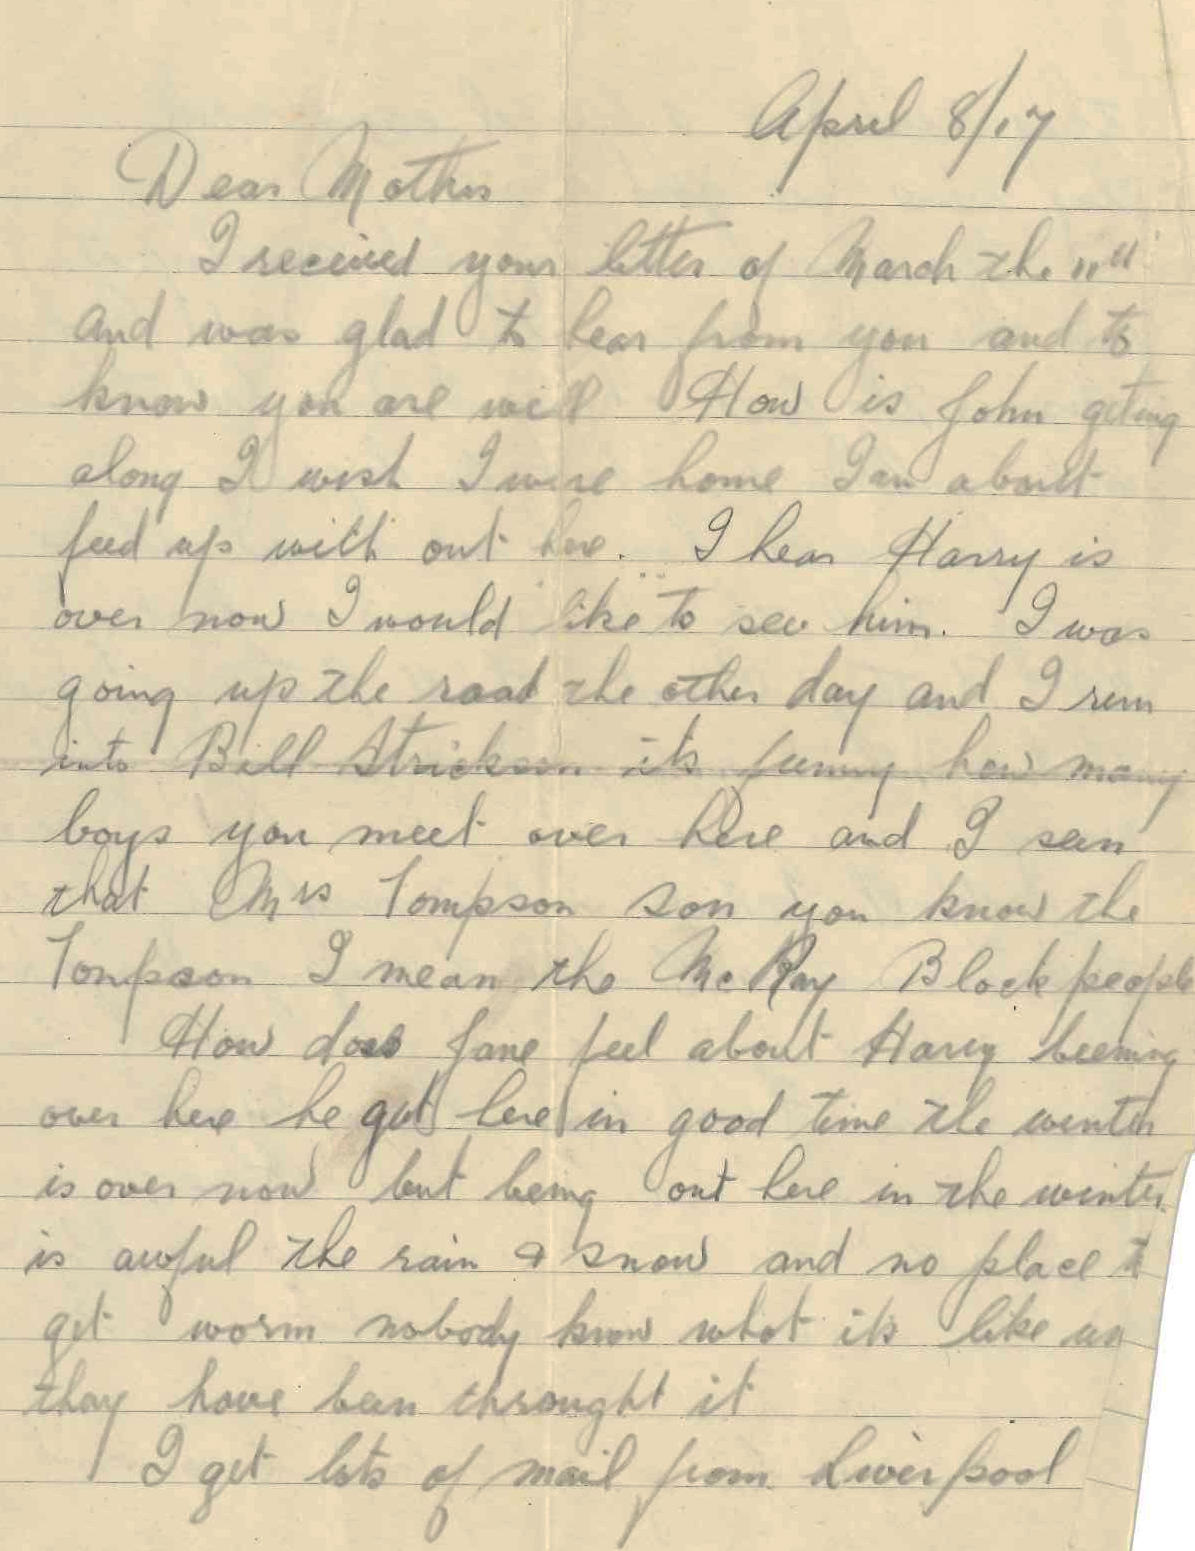 April 8/17
Dear Mother
I received your letter of March the 11"
and was glad to hear from you and to
know you are well How is John geting
along I wish I were home I am about
feed up with out here. I hear Harry is
over now I would like to see him. I was
going up the road the other day and I run
into Bill Strickson its funny how many
boys you meet over here and I seen
that Mrs Tompson son you know the
Tompson I mean the McRay Block people
How does Jane feel about Harry beeming
over here he got here in good time the winter
is over now but being out here in the winter
is awful the rain & snow and no place to
get worm nobody know what its like un
thay have been throught it
I get lots of mail from Liverpool